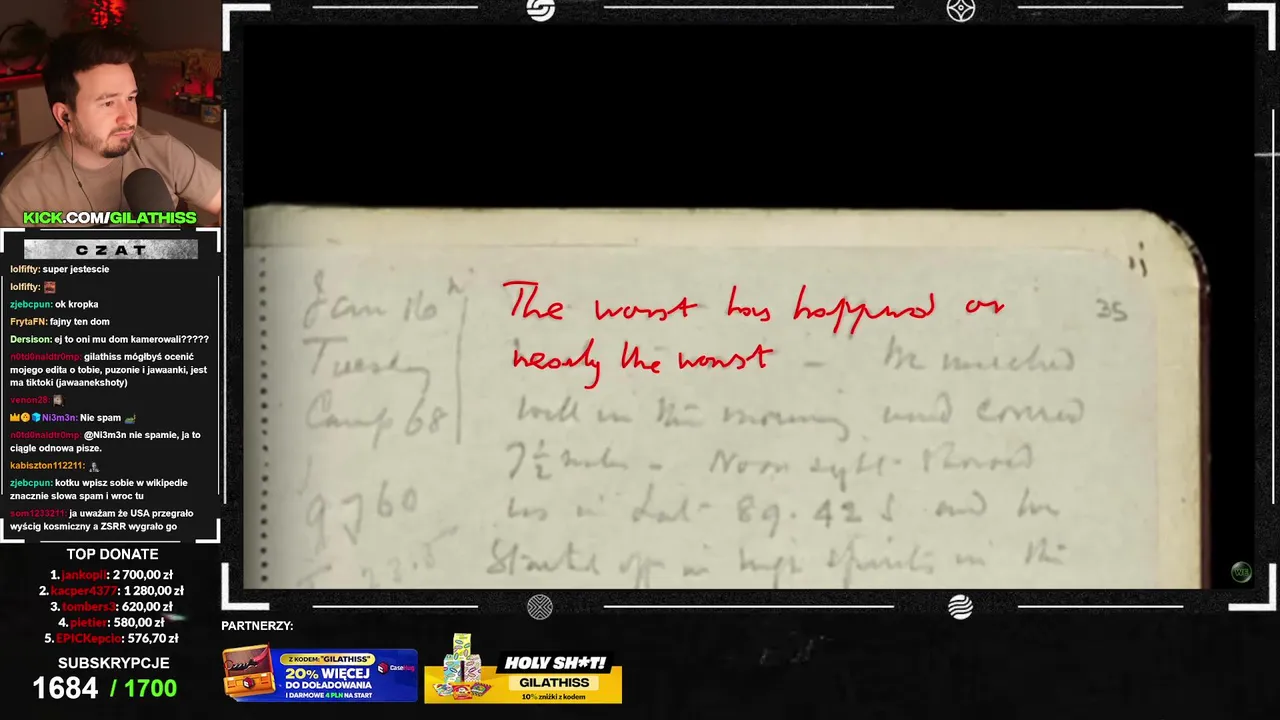 KICK.COM/GILATHISS
CZAT
lolfifty: super jestescie
lolfifty:
zjebcpun: ok kropka
FrytaFN: fajny ten dom
Dersison: ej to oni mu dom kamerowali?????
n0td0naldtr0mp: gilathiss mógłbyś ocenić
mojego edita o tobie, puzonie i jawaanki, jest
ma tiktoki (jawaanekshoty)
venon28:
Ni3m3n: Nie spam
n0td0naldtr0mp: @Ni3m3n nie spamie, ja to
ciągle odnowa pisze.
kabiszton112211:
zjebcpun: kotku wpisz sobie w wikipedie
znacznie slowa spam i wroc tu
som1233211: ja uważam że USA przegrało
wyścig kosmiczny a ZSRR wygrało go
TOP DONATE
1. jankopil: 2 700,00 zł
2. kacper4377: 1 280,00 zł
3. tombers3: 620,00 zł
4. pietier: 580,00 zł
5. EPICKepcio: 576,70 zł
SUBSKRYPCJE
1684 / 1700
Jan 16th The worst has happened or 35
Tuesday nearly the worst – We marched
Camp 68 well in the morning and covered
7½ miles – Noon sight showed
us in Lat 89.42 S and we
started off in high spirits in the
PARTNERZY:
Z KODEM: "GILATHISS"
20% WIĘCEJ
DO DOŁADOWANIA
I DARMOWE 4 PLN NA START
CaseHug
HOLY SH*T!
GILATHISS
10% zniżki z kodem